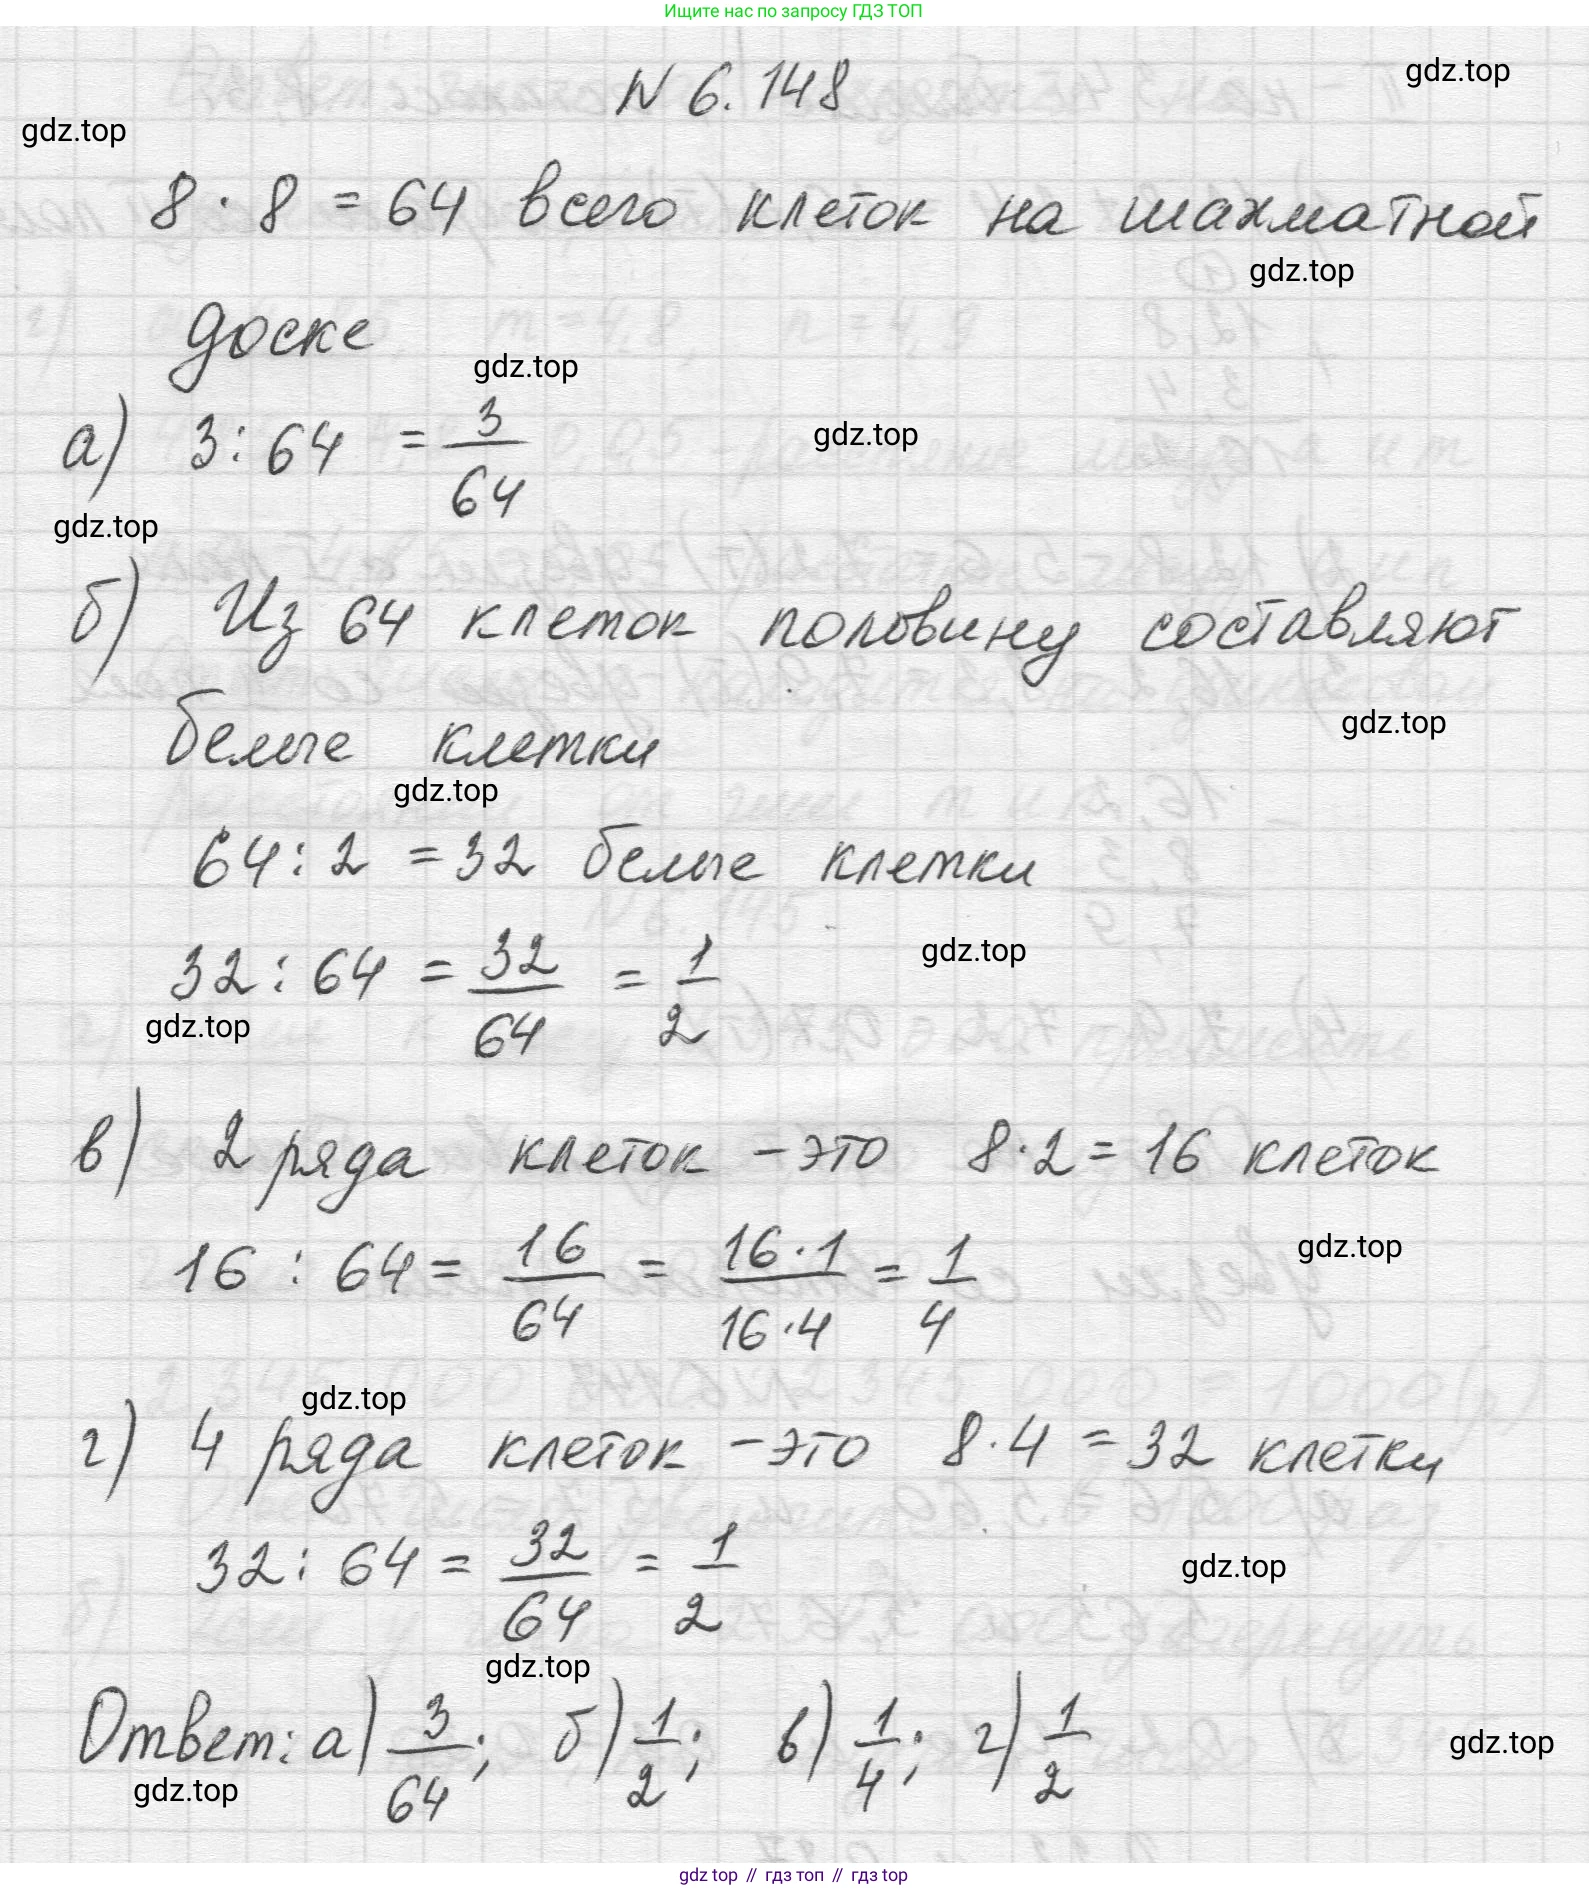 Ищите нас по запросу ГДЗ ТОП
N 6.148
gdz.top
gdz.top
8 · 8 = 64 всего клеток на шахматной
gdz.top
доске
gdz.top
а) 3 : 64 = 3/64
gdz.top
gdz.top
б) Из 64 клеток половину составляют
белые клетки
gdz.top
gdz.top
64 : 2 = 32 белые клетки
32 : 64 = 32/64 = 1/2
gdz.top
gdz.top
в) 2 ряда клеток - это 8 · 2 = 16 клеток
16 : 64 = 16/64 = 16·1/16·4 = 1/4
gdz.top
gdz.top
г) 4 ряда клеток - это 8 · 4 = 32 клетки
32 : 64 = 32/64 = 1/2
gdz.top
gdz.top
Ответ: а) 3/64; б) 1/2; в) 1/4; г) 1/2
gdz.top
gdz.top
gdz top // гдз топ // гдз top